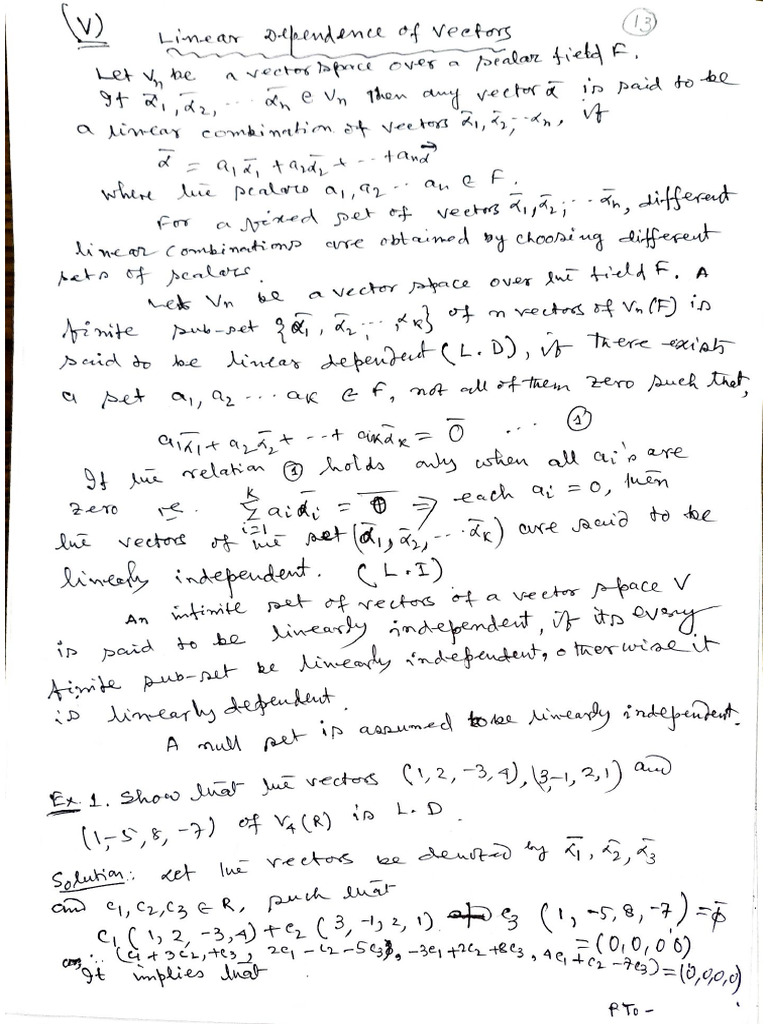 (V) Linear Dependence of Vectors (13)
Let Vn be a vector space over a scalar field F.
If ᾱ1, ᾱ2, ... ᾱn ∈ Vn then any vector ᾱ is said to be
a linear combination of vectors ᾱ1, ᾱ2, ... αn, if
ᾱ = a1ᾱ1 + a2ᾱ2 + ... + anᾱ
where the scalars a1, a2 .. an ∈ F.
For a fixed set of vectors ᾱ1, ᾱ2, ... ᾱn, different
linear combinations are obtained by choosing different
sets of scalars.
Let Vn be a vector space over the field F. A
finite sub-set {ᾱ1, ᾱ2 ... αK} of n vectors of Vn(F) is
said to be linear dependent (L.D), if there exists
a set a1, a2 ... aK ∈ F, not all of them zero such that,
a1ᾱ1 + a2ᾱ2 + ... + aKᾱK = 0̄ ... (1)
If the relation (1) holds only when all ai's are
zero ie. K Σ i=1 aiᾱi = 0̄ ⇒ each ai = 0, then
the vectors of the set (ᾱ1, ᾱ2, ... ᾱK) are said to be
linearly independent. (L.I)
An infinite set of vectors of a vector space V
is said to be linearly independent, if its every
finite sub-set be linearly independent, otherwise it
is linearly dependent.
A null set is assumed to be linearly independent.
Ex. 1. Show that the vectors (1, 2, -3, 4), (3, -1, 2, 1) and
(1, -5, 8, -7) of V4(R) is L.D.
Solution: Let the vectors be denoted by ᾱ1, ᾱ2, ᾱ3
and c1, c2, c3 ∈ R, such that
c1 (1, 2, -3, 4) + c2 (3, -1, 2, 1) + c3 (1, -5, 8, -7) = ō
= (0, 0, 0 0)
(c1 + 3c2 + c3, 2c1 - c2 - 5c3, -3c1 + 2c2 + 8c3, 4c1 + c2 - 7c3) = (0, 0, 0, 0)
It implies that
PTO -